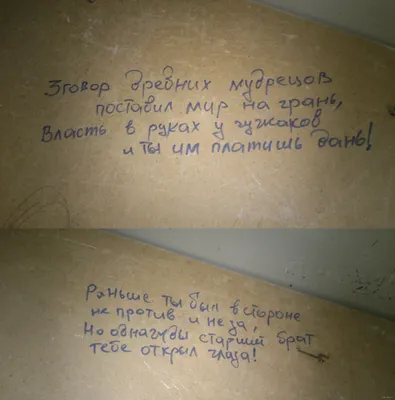 Зговор древних мудрецов
поставил мир на грань,
Власть в руках у чужаков
и ты им платишь дань!
Раньше ты был в стороне
не против и не за,
Но однажды старший брат
тебе открыл глаза!